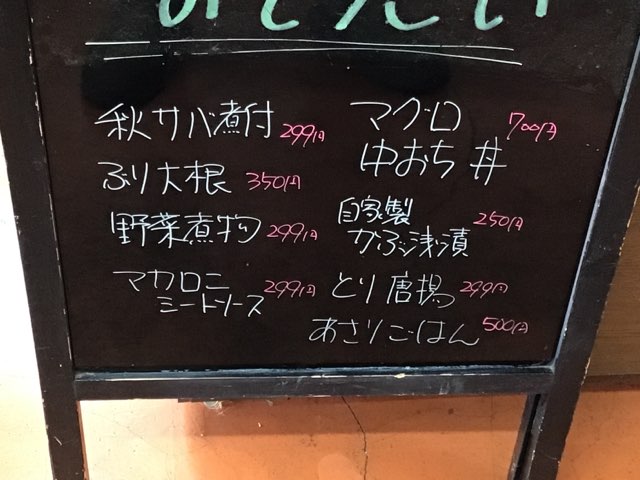 秋サバ煮付 299円
ぶり大根 350円
野菜煮物 299円
マカロニ
ミートソース 299円
マグロ 700円
中おち丼
自家製 250円
かぶ浅漬
とり唐揚 299円
あさりごはん 500円